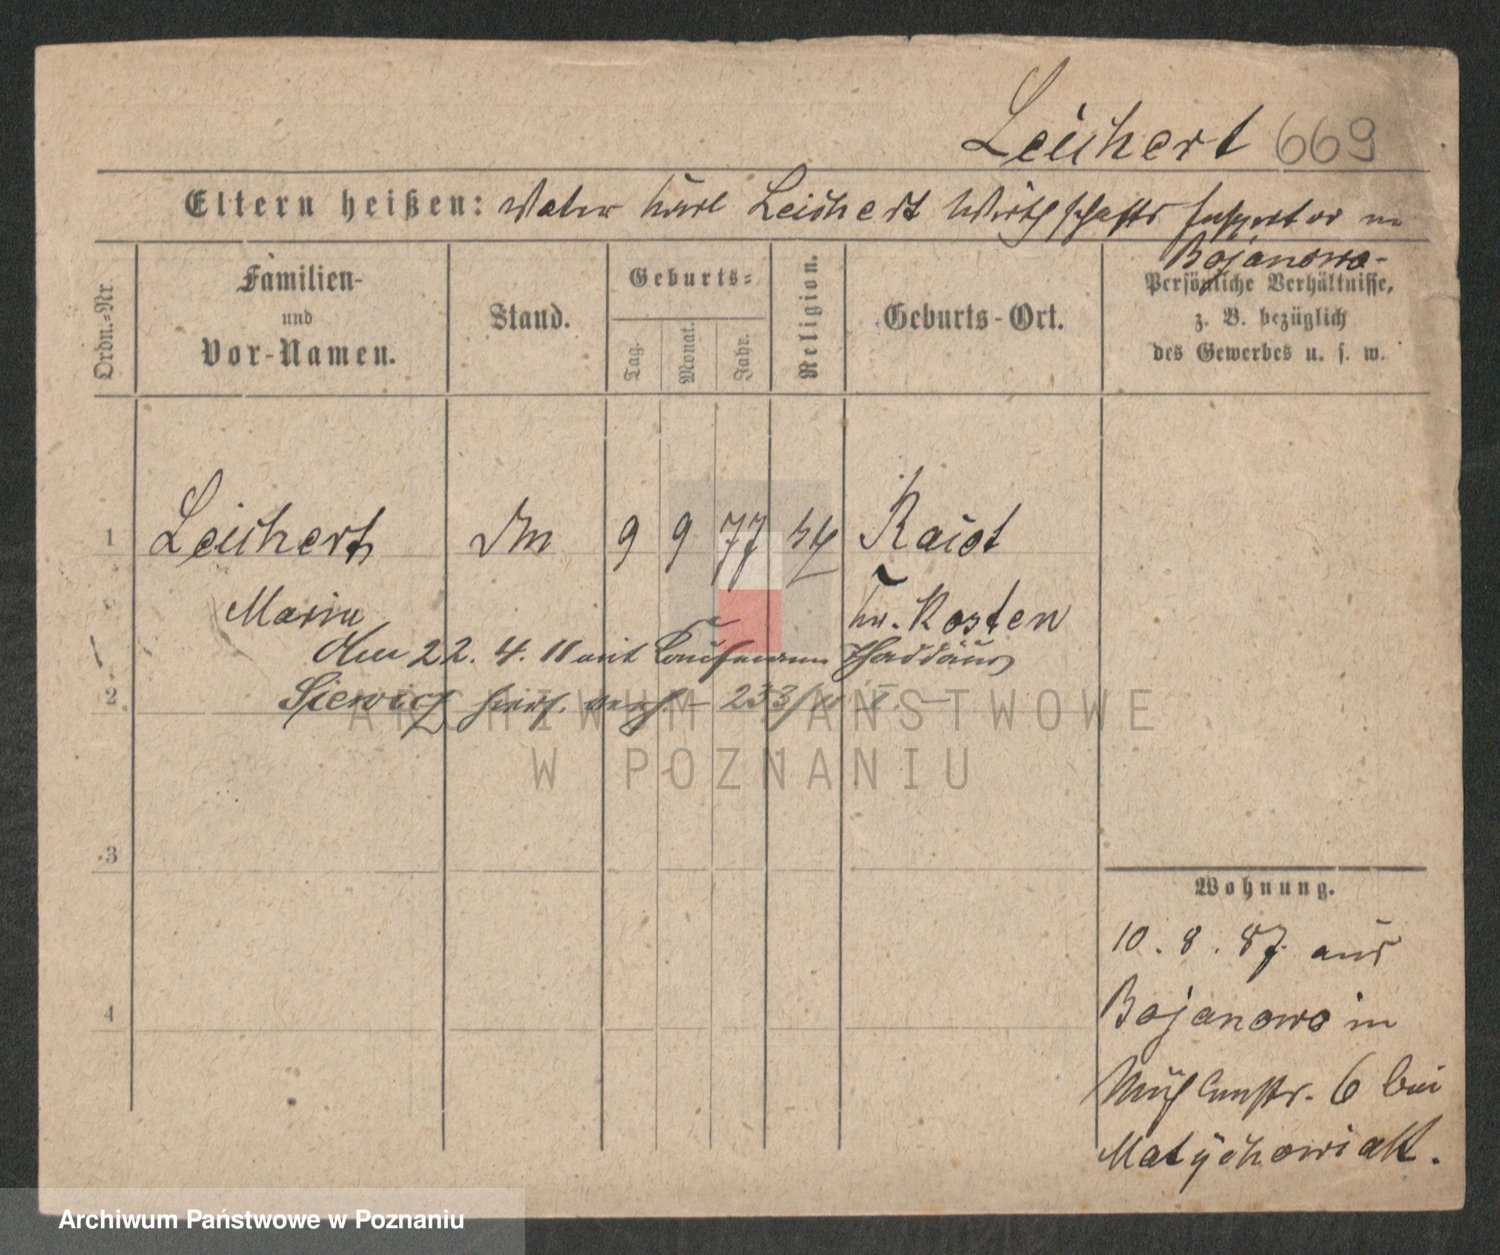 Leichert 669
Eltern heißen: Vater Karl Leichert Wirthschafts Inspektor in
Bojanowo-
Ordn.-Nr.
Familien-
und
Vor-Namen.
Stand.
Geburts-
Tag.
Monat.
Jahr.
Religion.
Geburts-Ort.
Persönliche Verhältnisse,
z. B. bezüglich
des Gewerbes u. s. w.
1 Leichert 9 9 77 Raiot
Maria Kr. Kosten
den 22. 4. 11 mit Kaufmann Thaddäus
2 Siewicz hier verh. - 233/11 II. -
ARCHIWUM PAŃSTWOWE
W POZNANIU
3
Wohnung.
10. 8. 87. aus
4 Bojanowo in
Mühlenstr. 6 bei
Matychowiak.
Archiwum Państwowe w Poznaniu